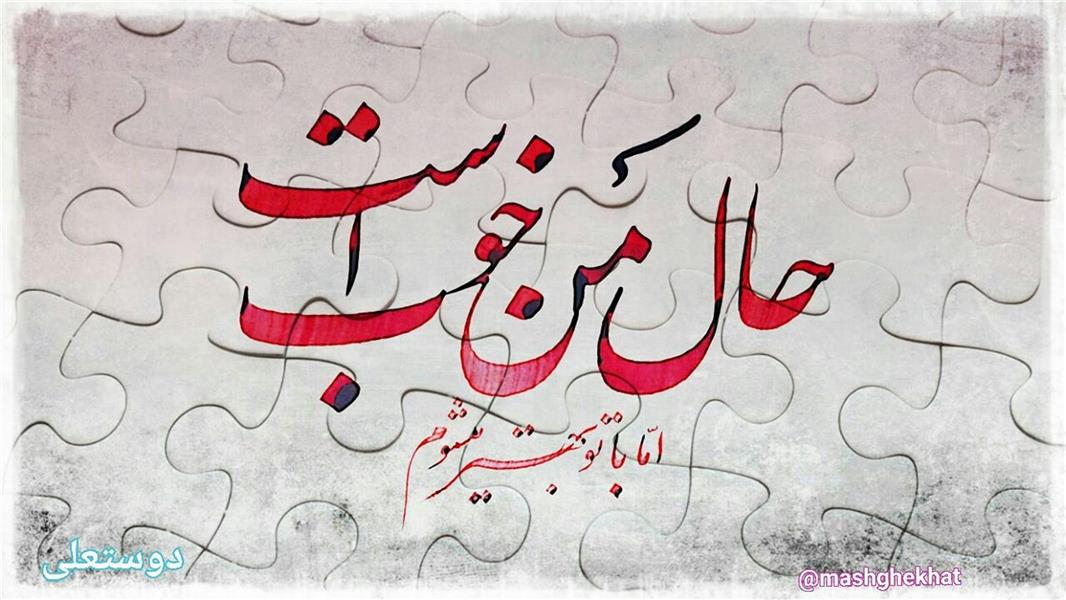 حال من خوب است
امّا با تو بهتر میشوم
دوستعلی
@mashghekhat